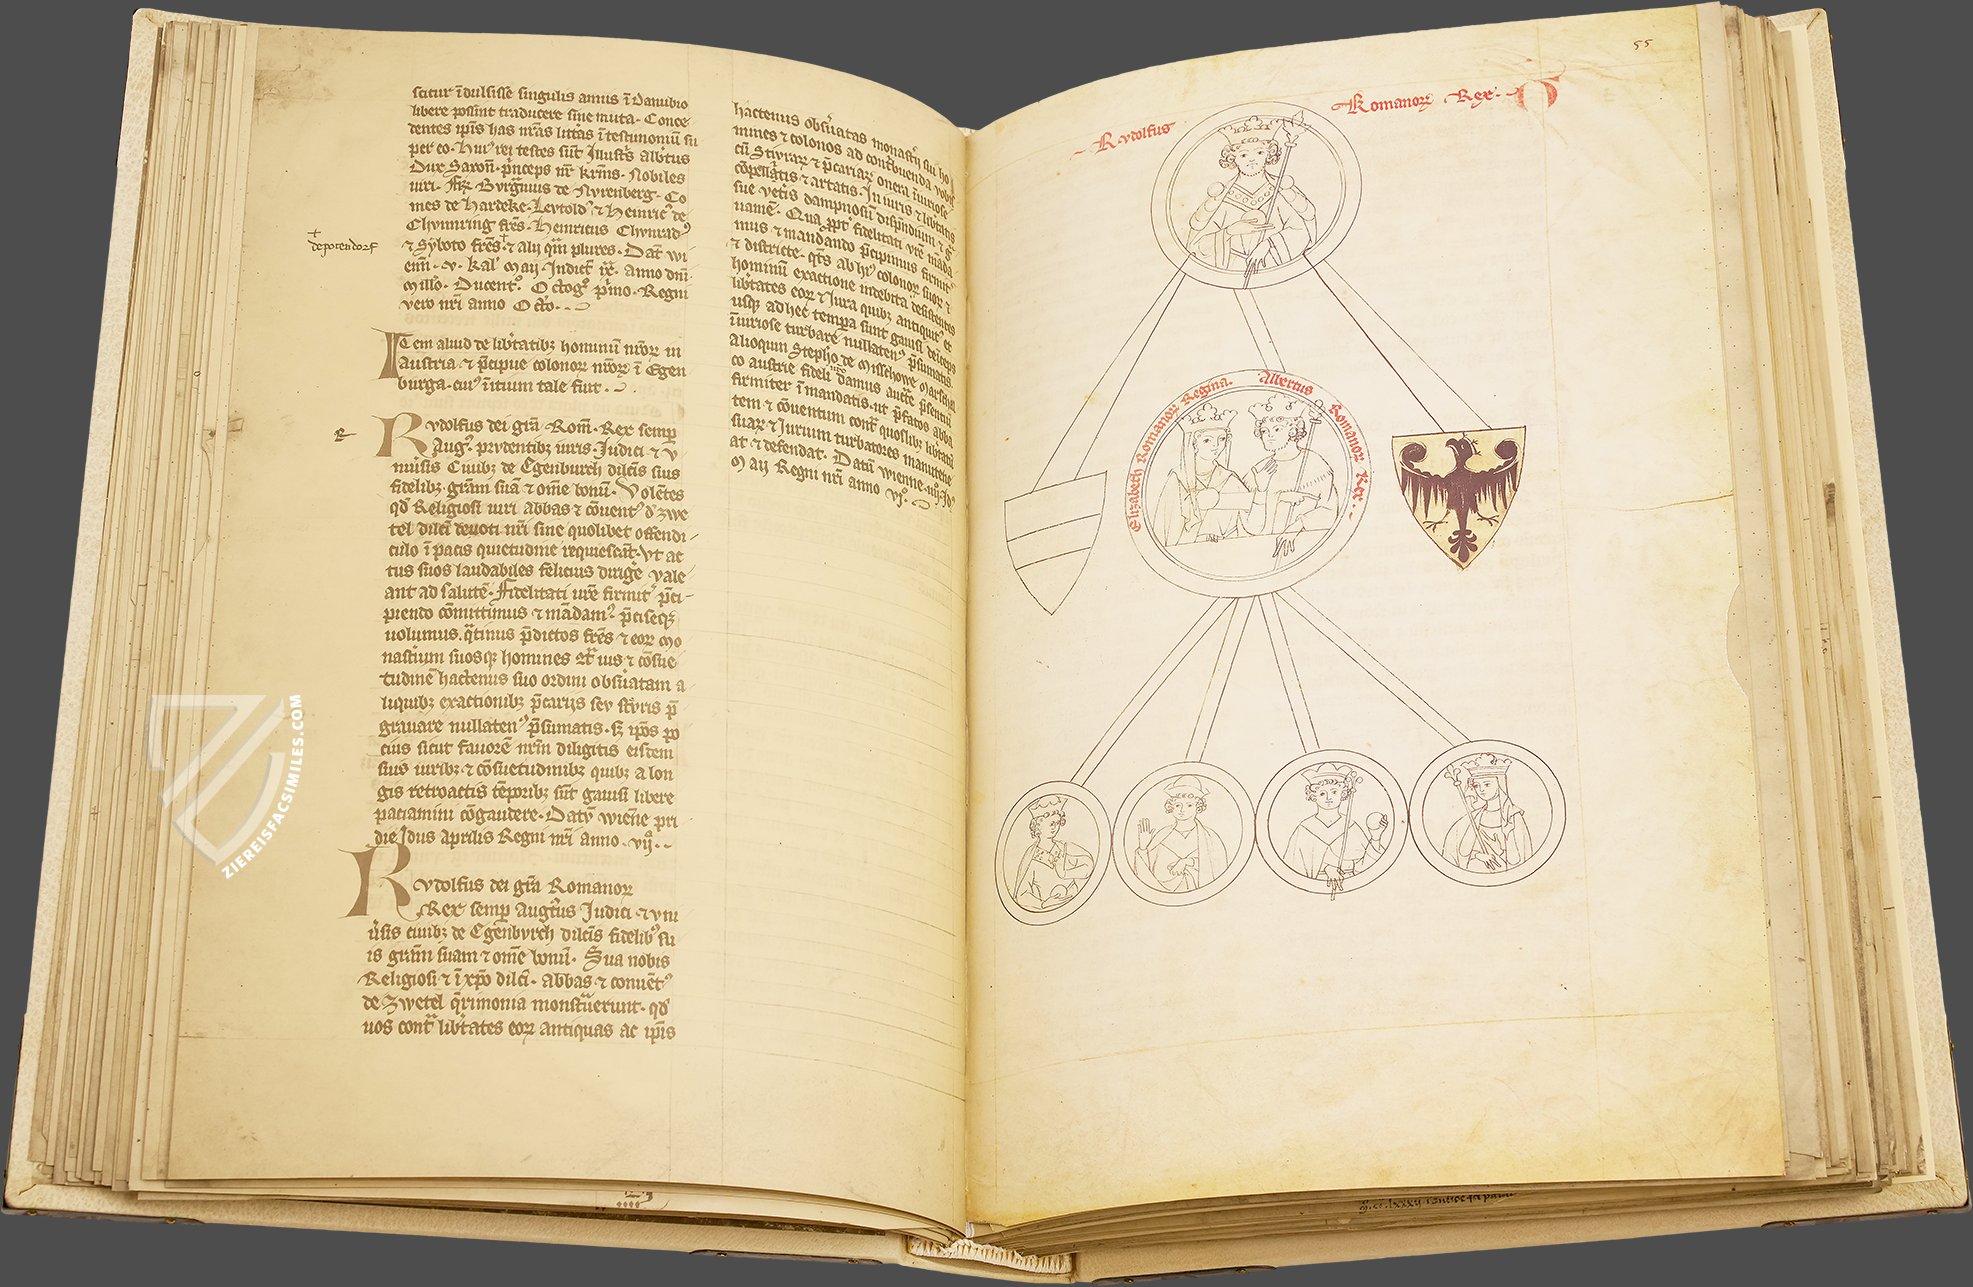 scitur ĩdulsisse singulis annis ĩ Danubio
libere possint traducere sine muta. Conce
dentes ip̃is has nr̃as litt̃as ĩ testimoniũ su
per eo. Hui' rei testes sũt Illust̃s Alb̃tus
Dux Saxoñ. p̃nceps nr̃ kr̃mus. Nobiles
uiri. Fr̃. Burg̃uius de Nyrenberg. Co
mes de Hardeke. Leutold' ⁊ Heinric' de
Chunring fr̃es. Heinricus Chunrad'
⁊ Syboto fr̃es ⁊ alij qm̃ plures. Dat̃ wi
eñ. v. kal' Maij. Indict̃ ix. anno dñi
Mill'o. Ducent'. Octog' p̃mo. Regni
vero nr̃i anno Octõ.
+
depotendorf
Item aliud de lib̃tatibȝ hominũ nr̃oꝝ in
Austria ⁊ p̃cipue colonoꝝ nr̃oꝝ ĩ Egen
burga. cui' ĩnitium tale fiut.
Rudolfus dei gr̃a Rom̃. Rex semp
Aug'. prudentibȝ uiris. Iudici ⁊ v
niũsis Ciuibȝ de Egenburch dilc̃is suis
fidelibȝ. gr̃am suã ⁊ om̃e bonũ. Volẽtes
qd̃ Religiosi uiri abbas ⁊ cõuent' d' zwe
tel dilc̃i deuoti nr̃i sine quolibet offendi
culo ĩ pacis quietudine requiescãt. vt ac
tus suos laudabiles felicius dirigẽ vale
ant ad salutẽ. Fidelitati ur̃e firmit' p̃ci
piendo cõmittimus ⁊ mãdam' p̃ciseqȝ
uolumus. q̃tinus p̃dictos fr̃es ⁊ eoꝝ mo
nast̃ium suosqȝ homines
tudinẽ hactenus suo ordini obs̃uatam a
liquibȝ exactionibȝ p̃carijs seu
grauare nullaten' p̃sumatis. sȝ ip̃os po
cius sicut fauorẽ nr̃m diligitis eisdem
suis iuribȝ ⁊ cõsuetudinibȝ quibȝ a lon
gis retroactis tẽporibȝ sũt gauisi libere
paciamini cõgaudere. Datũ wiẽne pri
die Idus aprilis Regni nr̃i anno. vij.
Rudolfus dei gr̃a Romanoꝝ
Rex semp Augustus Iudici ⁊ vni
ũsis ciuibȝ de Egenburch dilc̃is fidelib' su
is gr̃am suam ⁊ om̃e bonũ. Sua nobis
Religiosi ⁊ ĩ xp̃o dilc̃i. Abbas ⁊ conuẽt'
de Zwetel q̃rimonia monst̃uerunt. qd̃
uos cont̃ lib̃tates eoꝝ antiquas ac ip̃is
hactenus obs̃uatas monast̃ij sui ho
mines ⁊ colonos ad cont̃buenda vobis
cũ Stiuraȝ ⁊ p̃cariaꝝ onera ĩniuriose
cõpellatis ⁊ artatis. In iuris ⁊ lib̃tatis
sue vet̃is dampnosũ disp̃ndium ⁊
uamẽ. Qua p̃pt̃ fidelitati vr̃e mãda
mus ⁊ mandando p̃cipimus firmit̃
⁊ districte. q̃ts ab hi' colonoꝝ suoꝝ ⁊
hominũ exactione indebita desistentes
lib̃tates eoꝝ ⁊ Iura quibȝ antiquit' et
usqȝ ad hec tempora sunt gauisi deĩceps
ĩniuriose turbare nullaten' p̃sumatis.
Alioquin Stepho de Missowe Marschal
co austrie fideli damus auctẽ p̃sentiũ
firmiter ĩ mandatis. ut p̃fatos abba
tem ⁊ cõuentum cont̃ quoslibȝ lib̃tatũ
suaꝝ ⁊ Iurium turbatores manutene
at ⁊ defendat. Datũ wienne. iiij. Id'
Maij Regni nr̃i anno vj.
55
Rudolfus Romanoꝝ Rex.
Elizabeth Romanoꝝ Regina. Albertus Romanoꝝ Rex.
ZIEREISFACSIMILES.COM